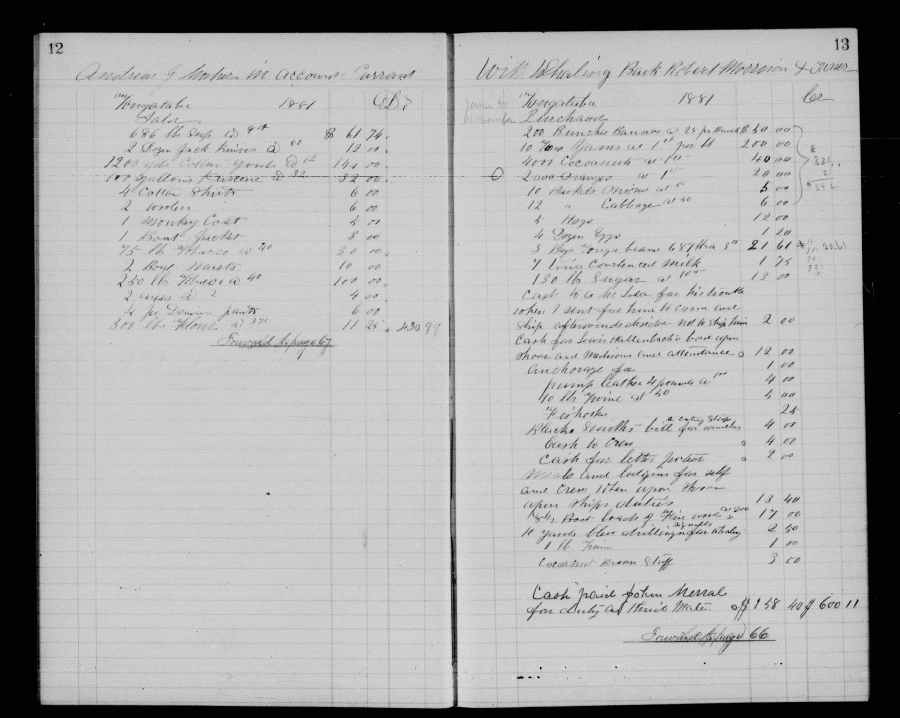 12
Andrew J Mosher in account Currant
Tongatabu 1881 Dr
Sales
686 lb Soap @ 9cts $ 61 74
2 Dozen Jack Knives @ 50 12 00
1200 yds Cotton goods @ 12 144 00
100 gallons Kerosene @ 32 32 00
4 Cotton Shirts 6 00
2 woolen 6 00
1 Monkey Coat 5 00
1 Boat Jacket 8 00
75 lb Tobacco @ 40 30 00
2 10 00
250 lb Tobacco @ 40 100 00
2 axes @ 2 4 00
4 pr Denim pants 6 00
300 lbs Flour @ 3 75 11 25 430 99
Forward to page 67
13
With Whaling Bark Robert Morrison & Owner
Tongatabu 1881 Cr
Purchases
200 Bunches Bananas @ 25 pr Bunch $ 50 00
10 Yams at 1 per lb 200 00
4000 Cocoanuts at 1ct 40 00
2000 Oranges at 1ct 20 00
10 Baskets Onions at 50 5 00
12 " Cabbage at 50 6 00
5 Hogs 12 00
4 Dozen Eggs 1 20
3 Bags Tonga beans 687 lbs 3ct 21 61
7 tins Condensed Milk 1 75
130 lb Sugar at 10ct 13 00
Cash to a for his trouble
when I sent for him to come and
Ship afterwards desided not to Ship him 2 00
Cash for Lewis bord upon
Shoar and Medisons and attendance 12 00
Anchorage fee 1 00
pump leather 4 pounds @ 1.00 4 00
10 lb Twine at 50 5 00
Fishooks 25
Blacks Smiths bill for 4 00
Cash to Crew 4 00
Cash for letter postage 2 00
Meals and lodgins for self
and Crew when upon Shoar
upon Ships duties 13 40
8½ Boat loads of Fire wood at 200 17 00
10 yards blue drilling for 2 50
1 lb 1 00
Cocoanut broom Stuff 3 00
Cash paid John
for Duty $ 158 40 $ 600 11
Forward to page 66